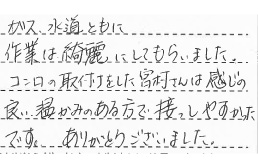 ガス、水道ともに
作業は綺麗にしてもらいました。
コンロの取付をした宮村さんは感じの
良い温かみのある方で接っしやすかった
です。 ありがとうございました。